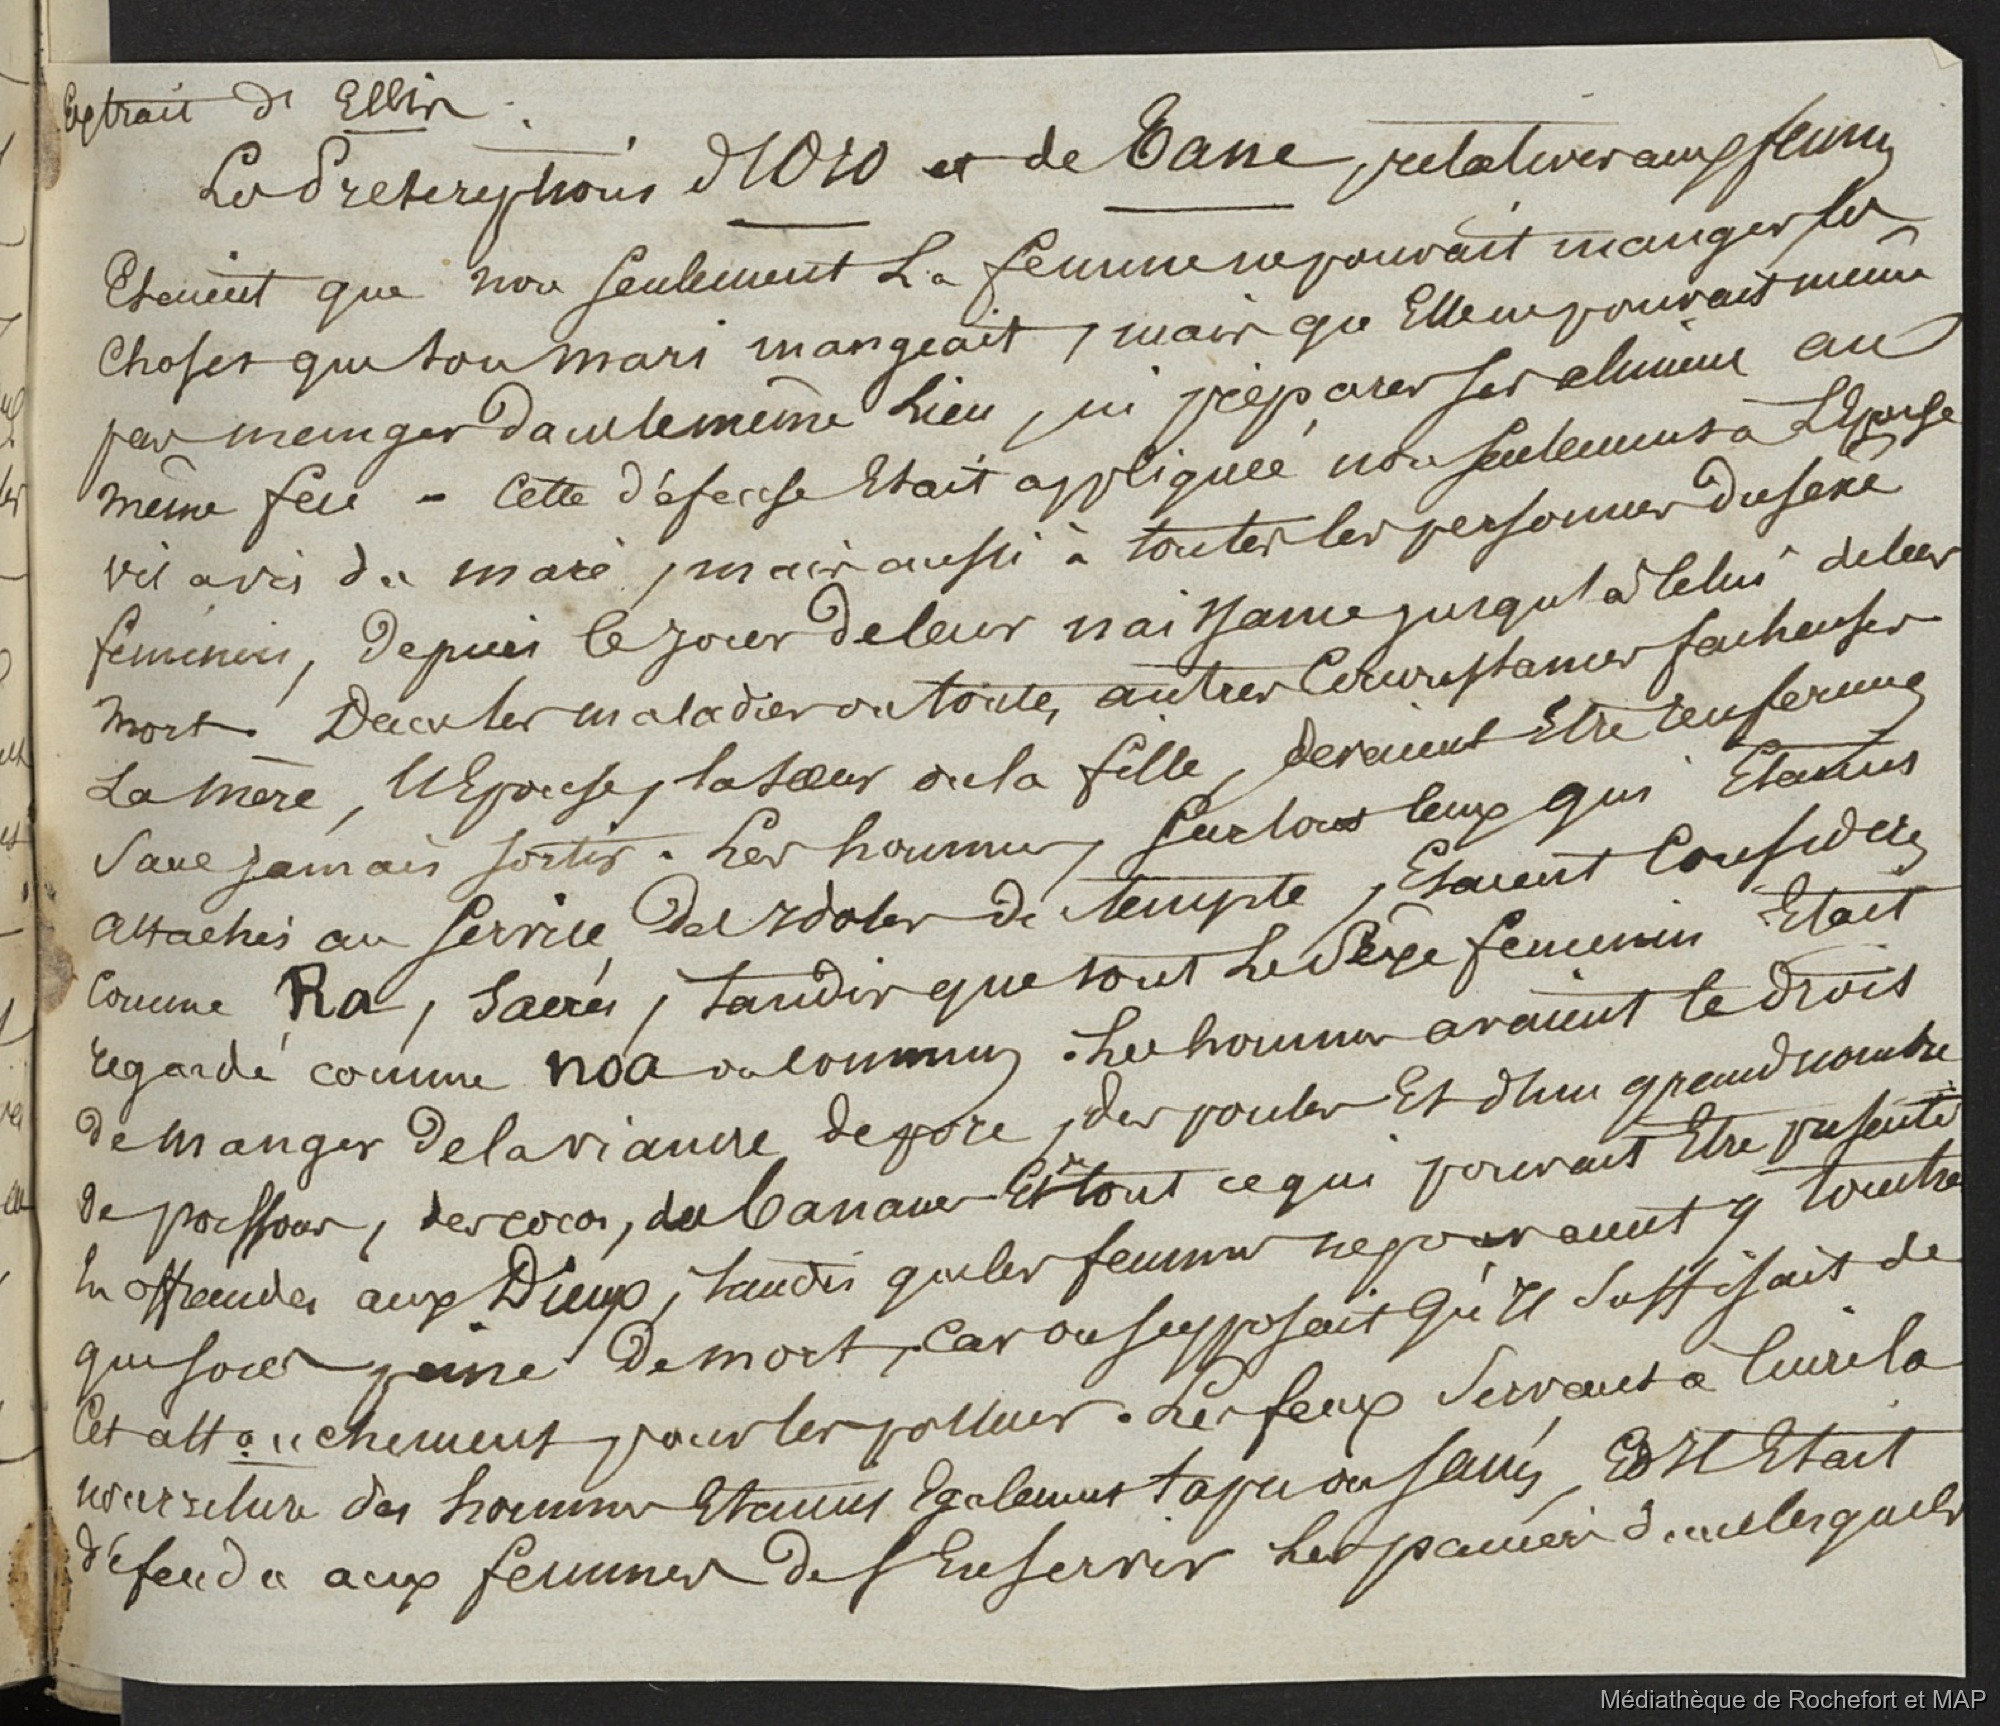 Extrait de Ellis.
Les Prescriptions d'Oro et de Tane, relatives aux femmes
Etaient que non seulement La femme ne pouvait manger les
choses que son mari mangeait, mais que Elle ne pouvait même
pas manger dans le même Lieu, ni préparer ses aliments au
même feu - Cette défense Etait appliquée non seulement à L'Epouse
vis avis du mari, mais aussi à toutes les personnes du sexe
feminin, Depuis le jour de leur naissance jusqu'à celui de leur
mort. Dans les maladies ou toutes autres Circonstances facheuses
La mère, l'Epouse, la sœur ou la fille, devaient Etre renfermées
Sans jamais sortir. Les hommes, surtout ceux qui Etaient
attachés au service des Idoles du temple, Etaient Considerés
Comme Ra, Sacrés, tandis que tout Le Sexe feminin Etait
regardé comme noa ou commun. Les hommes avaient le droit
De manger De la viande de porc, des poules Et d'un grand nombre
De poissons, des cocos, des bananes Et tout ce qui pouvait Etre présenté
En offrandes aux Dieux, tandis que les femmes ne pouvaient y toucher
que sous peine De mort, car on supposait qu'Il suffisait de
Cet attouchement pour les polluer. Les feux Servant à Cuire la
nourriture des hommes Etaient Egalement tapu ou sacrés, Et Il Etait
défendu aux femmes De s'En servir Les paniers dans lesquels
Médiathèque de Rochefort et MAP